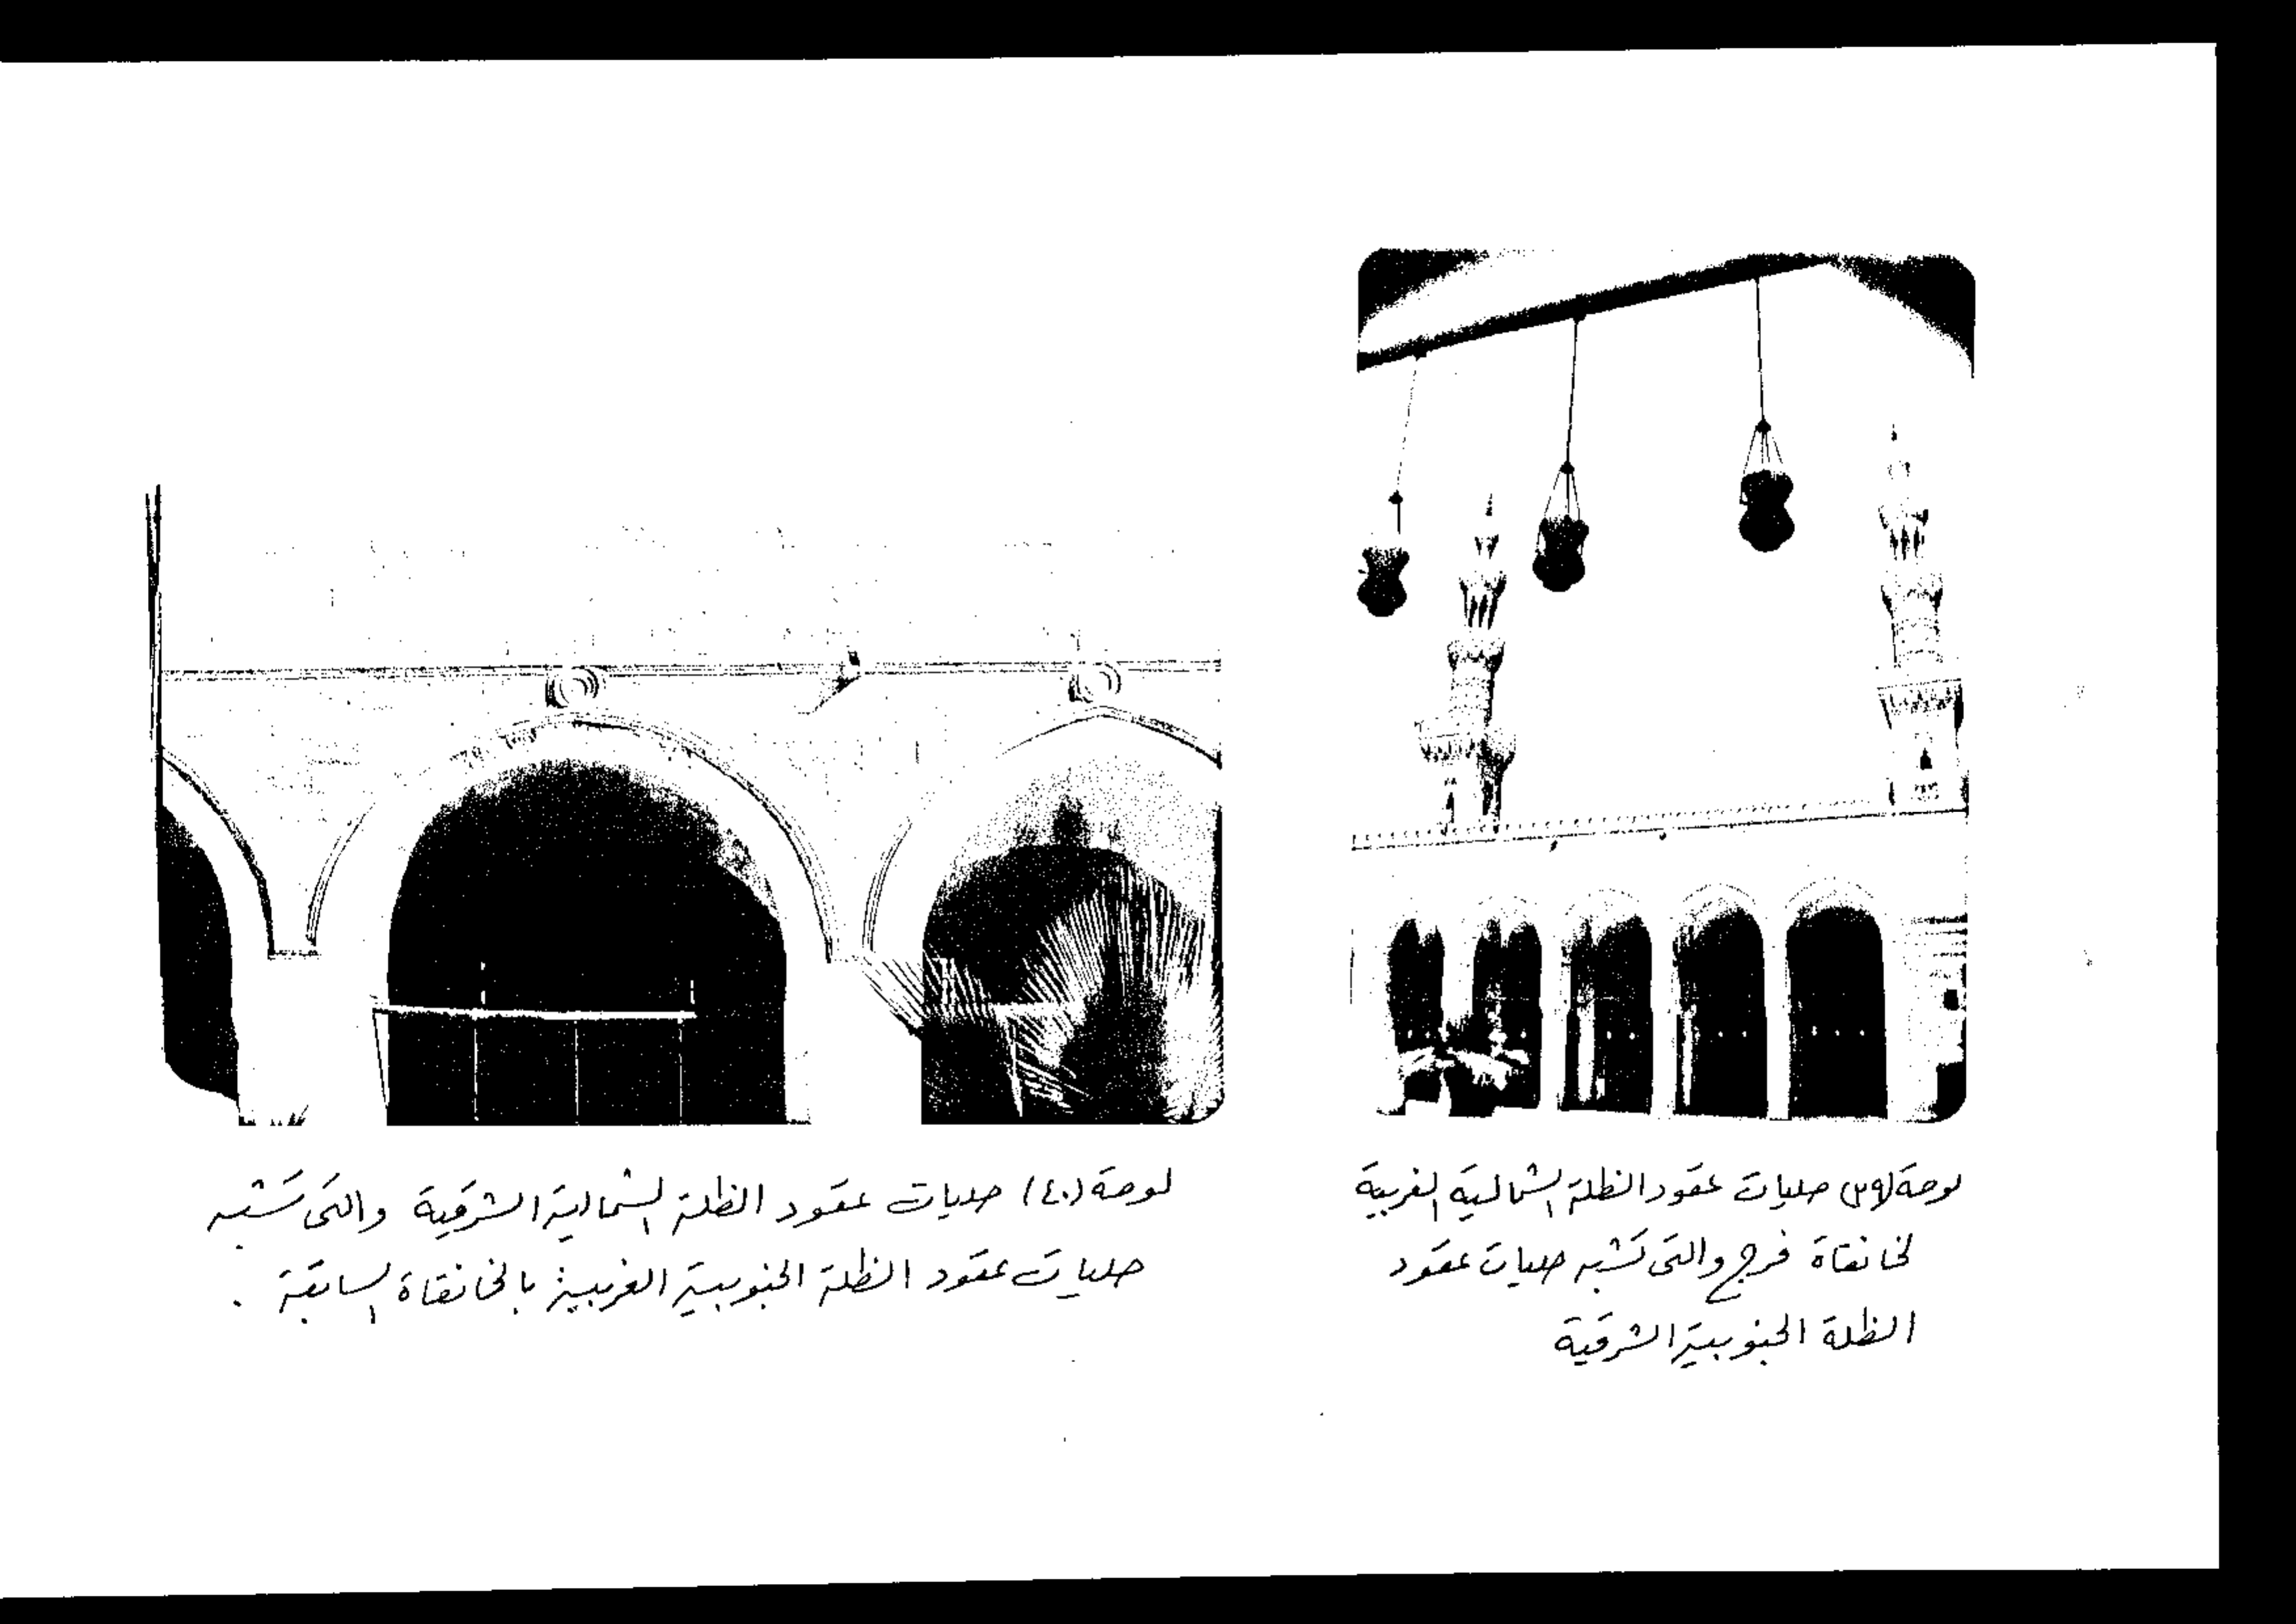 لوحة (٣٩) حليات عقود الظلة الشمالية الغربية
لخانقاة فرج والتى تشبه حليات عقود
الظلة الجنوبية الشرقية
لوحة (٤٠) حليات عقود الظلة الشمالية الشرقية والتى تشبه
حليات عقود الظلة الجنوبية الغربية بالخانقاة السابقة .